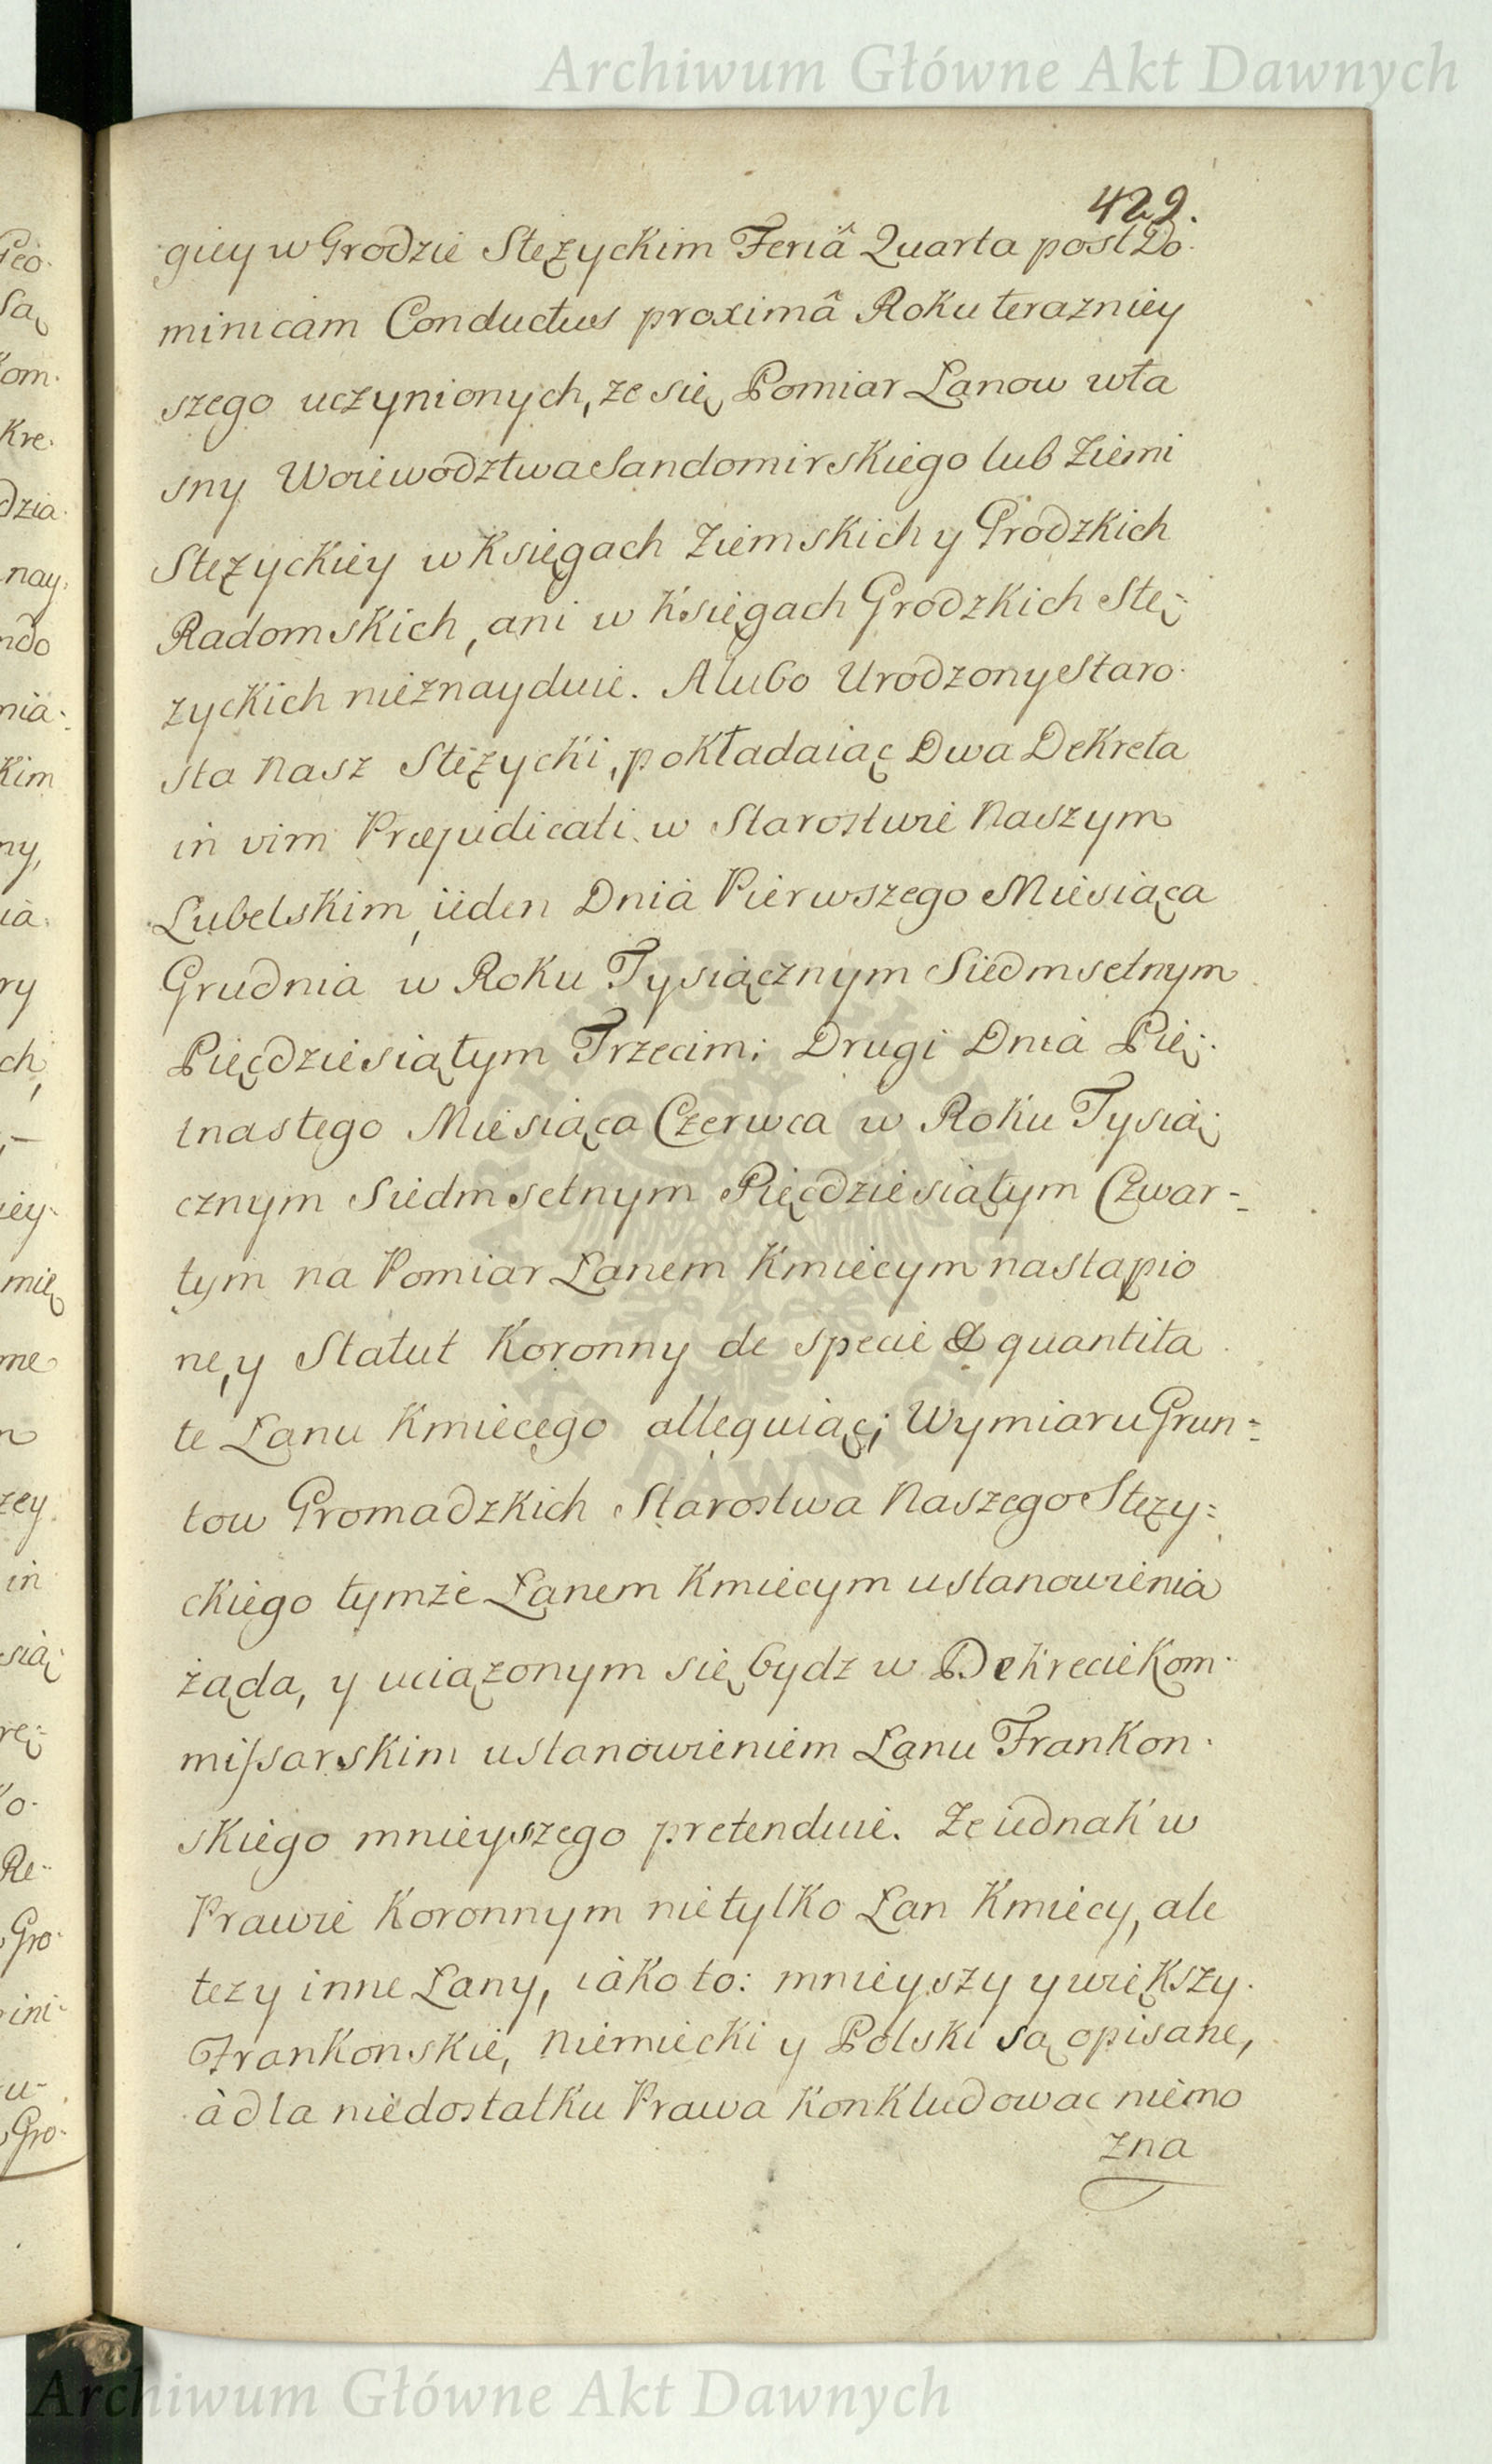 Archiwum Główne Akt Dawnych
429.
giey w Grodzie Stęzyckim Feriâ Quarta post Do-
minicam Conductus proximâ Roku terazniey
szego uczynionych, ze się Pomiar Lanow wła
sny Woiewodztwa Sandomirskiego lub Ziemi
Stęzyckiey w Księgach Ziemskich y Grodzkich
Radomskich, ani w Księgach Grodzkich Stę-
zyckich nieznayduie. A lubo Urodzony Staro-
sta Nasz Stęzycki, pokładaiąc Dwa Dekreta
in vim Præjudicati w Starostwie Naszym
Lubelskim, ieden Dnia Pierwszego Miesiąca
Grudnia w Roku Tysiącznym Siedmsetnym
Pięcdziesiątym Trzecim; Drugi Dnia Pię-
tnastego Miesiąca Czerwca w Roku Tysią-
cznym Siedmsetnym Pięcdziesiątym Czwar-
tym na Pomiar Lanem Kmiecym nastąpio
ne, y Statut Koronny de specie & quantita
te Lanu Kmiecego alleguiąc; Wymiaru Grun-
tow Gromadzkich Starostwa Naszego Stęzy-
ckiego tymże Lanem Kmiecym ustanowienia
żąda, y uciązonym się bydz w Dekrecie Kom-
missarskim ustanowieniem Lanu Frankon-
skiego mnieyszego pretenduie. Ze iednak w
Prawie Koronnym nietylko Lan Kmiecy, ale
tez y inne Lany, iàko to: mnieyszy y większy
Frankonskie, Niemiecki y Polski są opisane,
à dla niedostatku Prawa Konkludowac niemo
zna
Archiwum Główne Akt Dawnych